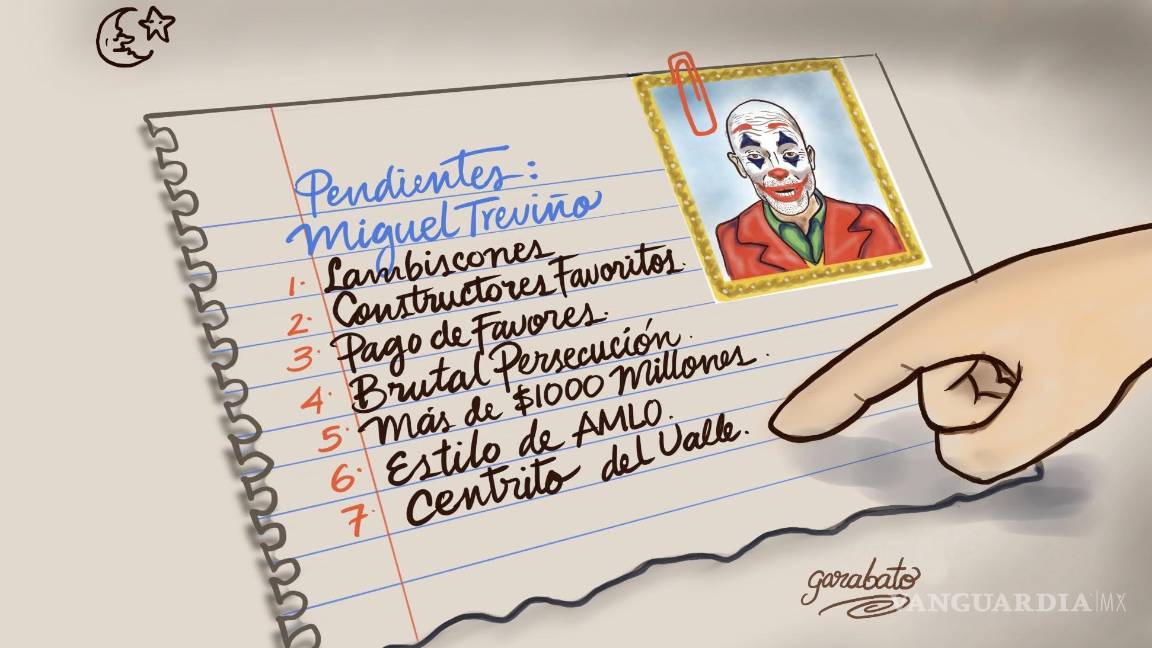 Pendientes:
Miguel Treviño
1. Lambiscones
2. Constructores Favoritos.
3. Pago de Favores.
4. Brutal Persecución.
5. Más de $1000 Millones.
6. Estilo de AMLO.
7. Centrito del Valle.
garabato
VANGUARDIA|MX